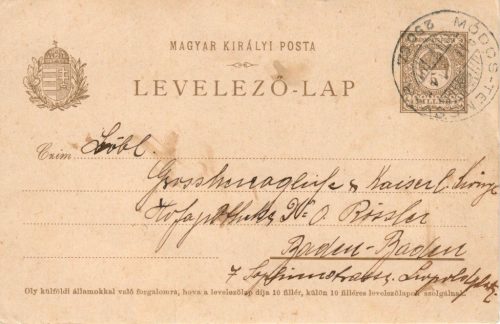 MAGYAR KIRÁLYI POSTA
LEVELEZŐ-LAP
5
FILLÉR
MÓDOS
Czim: Löbl.
Grossherzogliche & Kaiserl.
Hofapotheke O. Rössler
Baden-Baden
7 Sophienstrasse, Leopoldplatz
Oly külföldi államokkal való forgalomra, hova a levelezőlap díja 10 fillér, külön 10 filléres levelezőlapok szolgálnak.